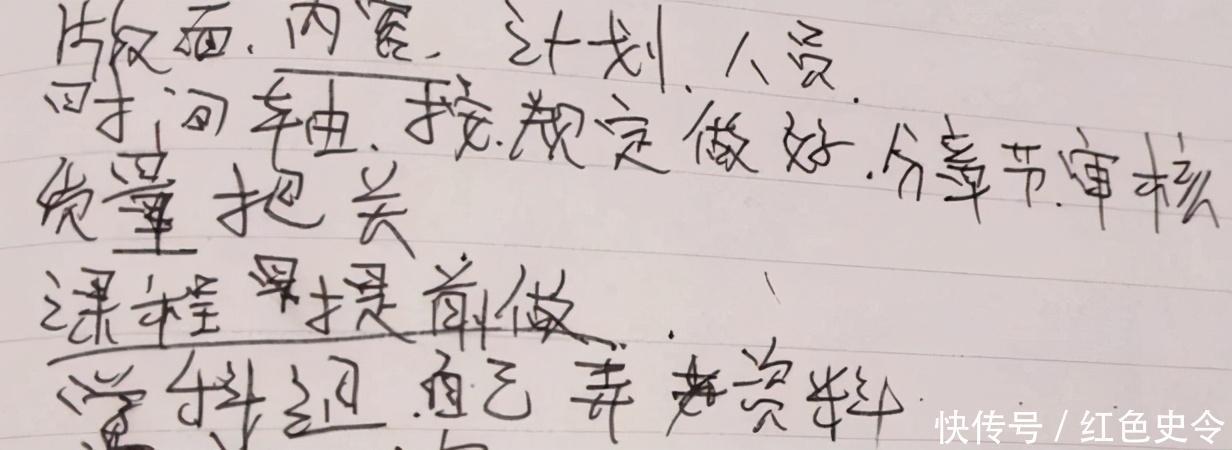 版面.内容.计划.人员.
时间轴.按.规定做好.分章节.审核
质量把关
课程 提前做.
学科组.自己弄 资料.
快传号/红色史令